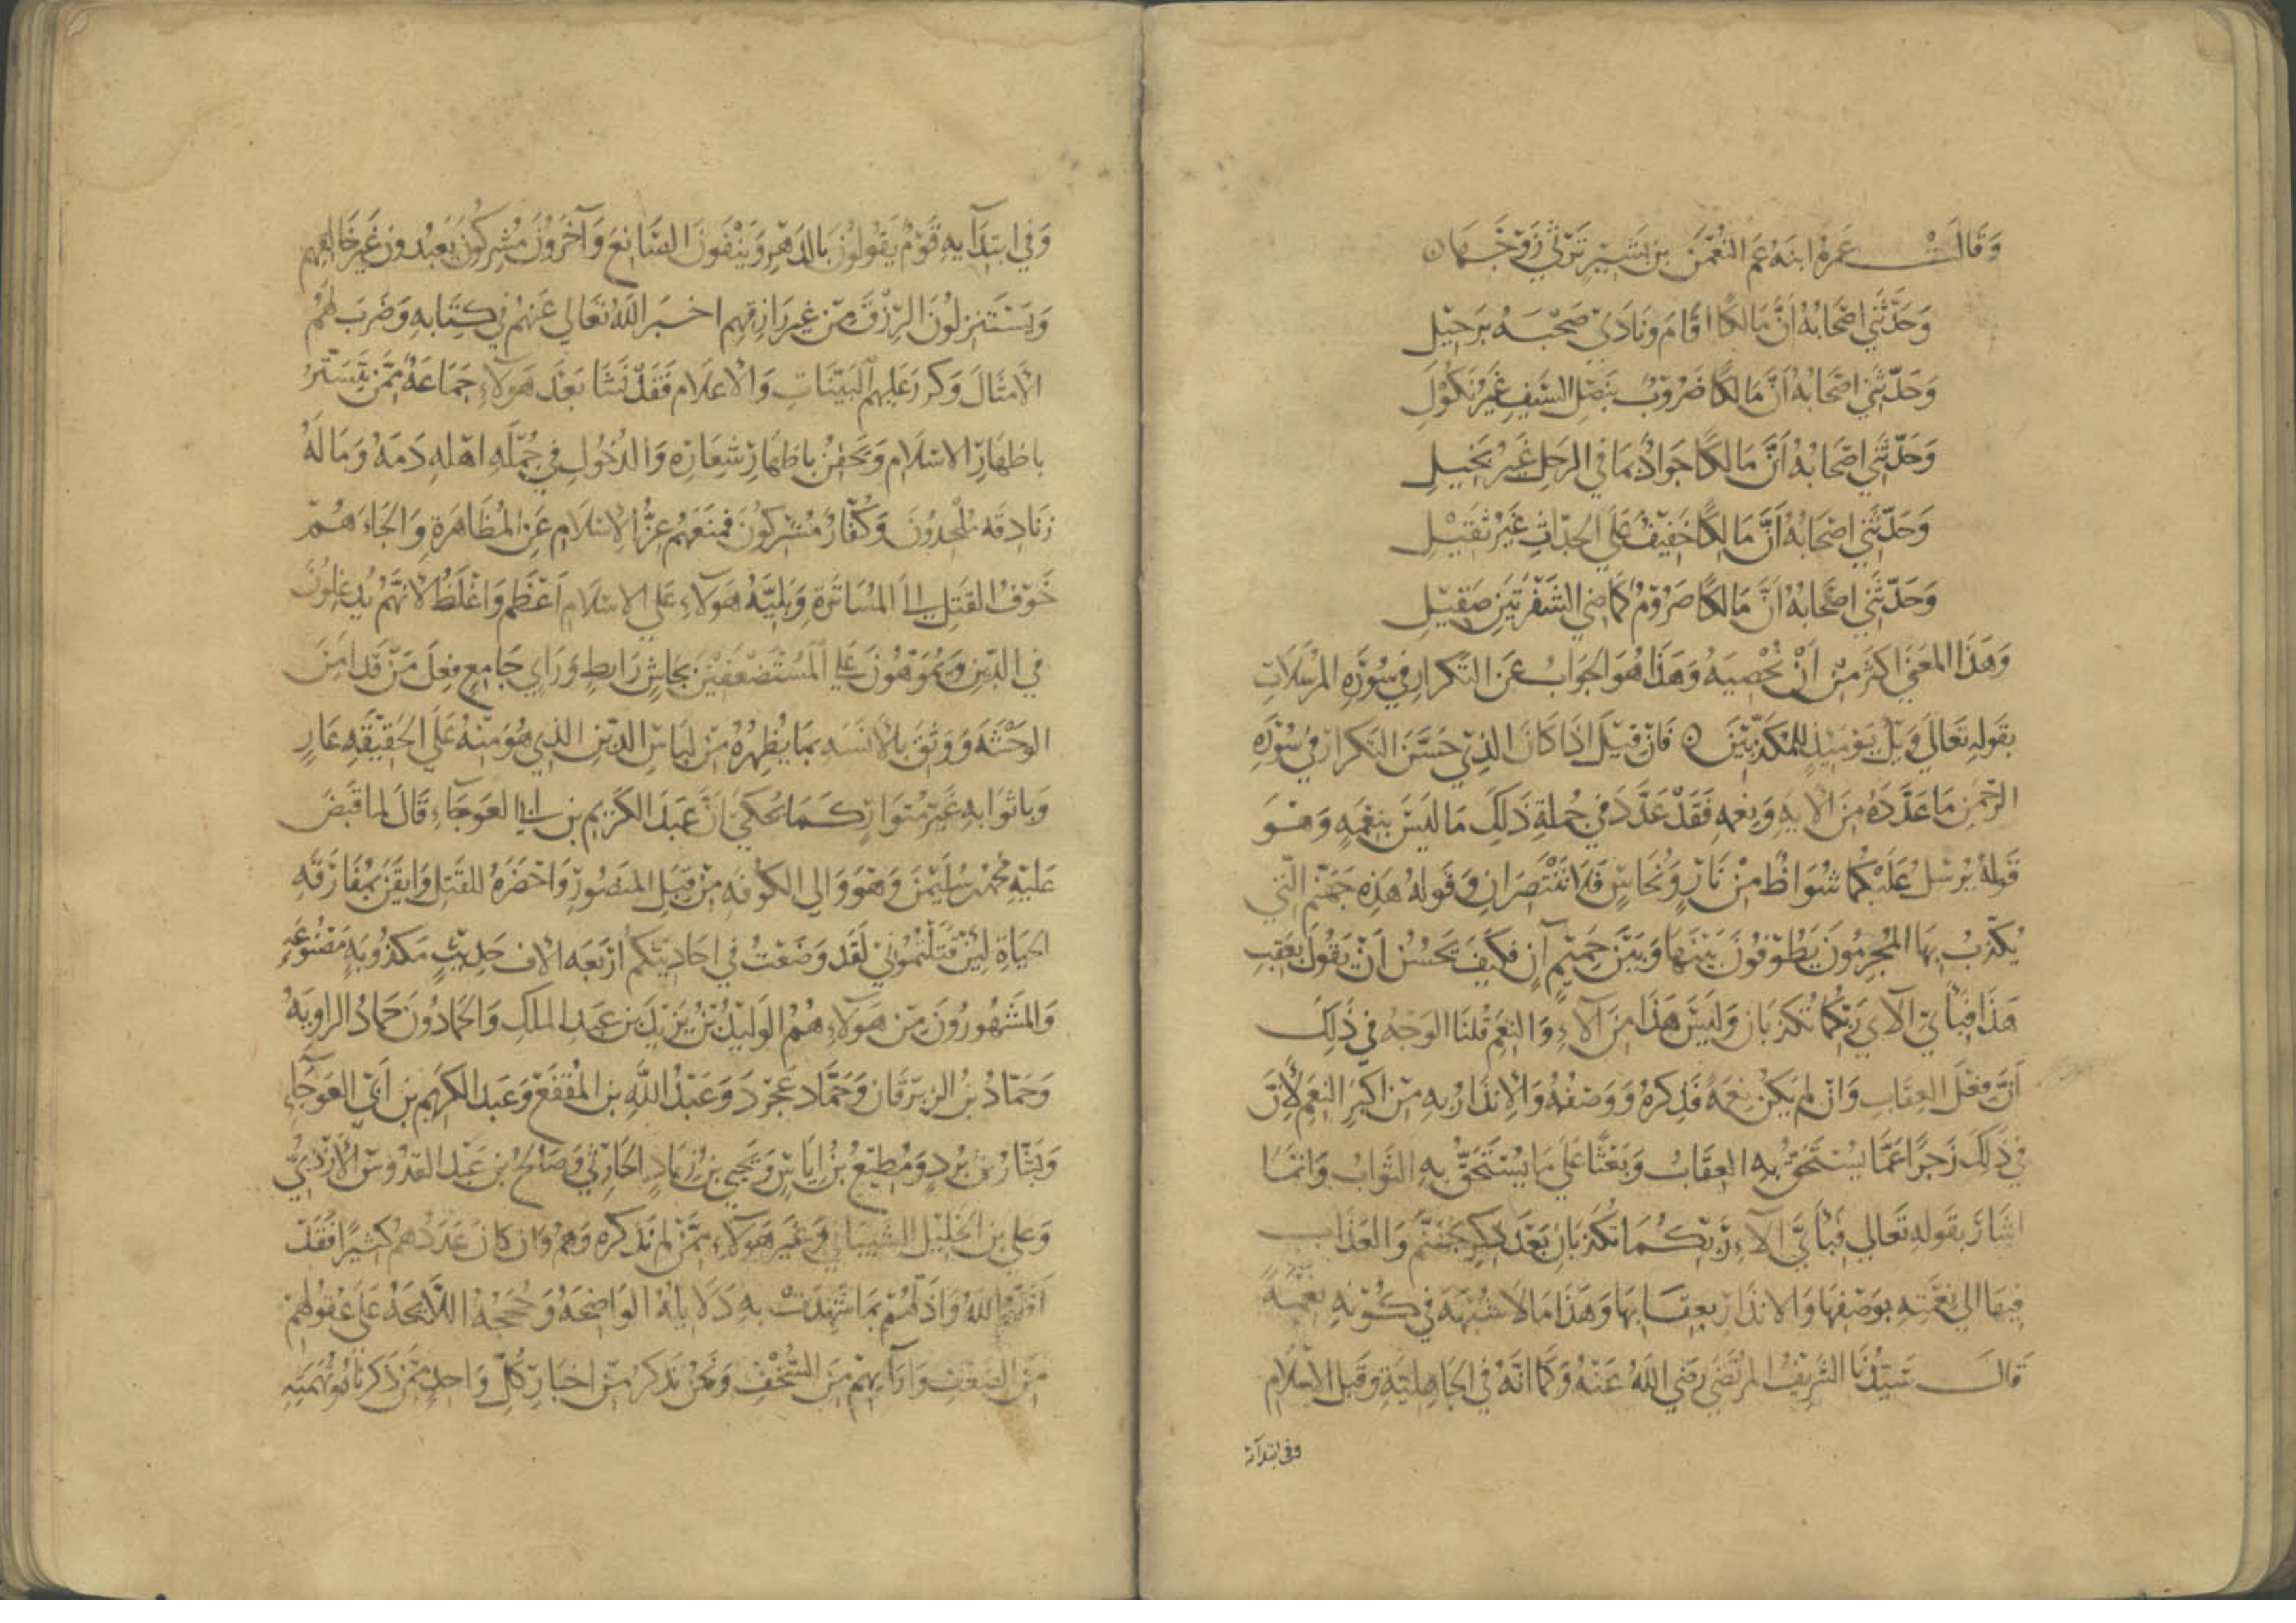 وَقَالَتْ عَمرةُ ابنَةُ عَمِّ النُّعْمٰنِ بنِ بَشِيْرٍ تَرْثي زَوْجَهَا
وَحَدَّثَنِي اصْحَابُهُ أنَّ مَالكًا اقَامَ وَنَادَى صَحْبَهُ بِرَحِيْلِ
وَحَدَّثَنِي اصْحَابُهُ أنَّ مَالكًا ضَرُوْبٌ بنَصْلِ السَّيفِ غَيْرُ نَكُوْلِ
وَحَدَّثَنِي اصْحَابُهُ أنَّ مَالكًا جَوَادٌ بمَا في الرحلِ غَيْرُ بَخِيلِ
وَحَدَّثَنِي اصْحَابُهُ أنَّ مَالكًا خَفِيْفٌ عَلَى الحدَّاثِ غَيْرُ ثَقِيْلِ
وَحَدَّثَنِي اصْحَابُهُ أنَّ مَالكًا صَرُوْمٌ كَمَاضِي الشَّفْرَتَيْنِ صَقِيْلِ
وَهَذَا المعْنَى اكثَرُ مِنْ أنْ نُحْصِيَهُ وَهَذَا هُوَ الجَوَابُ عَنِ التَّكرارِ في سُوْرَةِ المرْسَلَاتِ
بقَولِهِ تَعَالَى وَيْلٌ يَوْمَئِذٍ لِلْمُكَذِّبِيْنَ فَانْ قِيْلَ اذَا كَانَ الذِي حَسَّنَ التكرارَ في سُوْرَةِ
الرَّحْمٰنِ مَا عَدَّدَهُ مِنَ الآيهِ وَنِعَمِهِ فَقَدْ عَدَّدَ في جُملةِ ذَلِكَ مَا لَيْسَ بنِعْمَةٍ وَهُوَ
قَولُهُ يُرْسَلُ عَلَيْكُمَا شُوَاظٌ مِنْ نَارٍ وَنُحَاسٍ فَلَا تَنْتَصِرَانِ وَقَولهُ هَذِهِ جَهَنَّمُ الَّتِي
يُكَذِّبُ بِهَا المُجْرِمُونَ يَطُوْفُوْنَ بَيْنَهَا وَبَيْنَ حَمِيْمٍ آنٍ فكَيْفَ يَحْسُنُ أنْ يَقُولَ بعَقِبِ
هَذَا فَبِأيِّ آلآءِ رَبِّكُمَا تُكَذِّبَانِ وَلَيْسَ هَذَا مِنَ آلآءِ وَالنِّعَمِ قُلنَا الوَجْهُ في ذَلِكَ
أنَّ فِعْلَ العِقَابِ وَانْ لم يَكُنْ نِعْمَةً فَذِكرهُ وَوَصْفُهُ وَالْانذَارُ بهِ مِنْ اكبَرِ النِّعَمِ لأنَّ
في ذَلِكَ زَجرًا عَمَّا يُسْتَحَقُّ بهِ العِقَابُ وَبَعْثًا عَلَى مَا يُسْتَحَقُّ بِهِ الثَّوَابُ وَانمَا
اشَارَ بقَولهِ تَعَالَى فَبأيِّ آلآءِ رَبِّكُمَا تُكَذِّبَانِ بَعْدَ ذِكرِ جَهَنَّمَ وَالعَذَابِ
فِيهَا الى نِعْمَتِهِ بوَصْفِهَا وَالانذَارِ بعِقَابِهَا وَهَذَا مَا لَا شُبْهَةَ في كَوْنِهِ نِعْمَةً
قَالَ سَيِّدُنَا الشَّرِيْفُ المرْتَضَى رَضِيَ اللهُ عَنْهُ وَكَمَا انَّهُ في الجَاهِليَّةِ وَقَبلَ الاسْلَام
وفي ابتدآئه
وَفي ابتدَآئِهِ قَوْمٌ يَقُولُوْنَ بالدَّهْرِ وَيَنْفُونَ الصَّانِعَ وَآخَرُوْنَ مُشرِكُوْنَ يَعْبُدُونَ غَيرَ خَالِقِهِم
وَيَسْتَنزِلُوْنَ الرِّزْقَ مِنْ غيرِ رَازِقِهِم اخبَرَ اللهُ تعَالى عَنْهُمْ في كِتَابهِ وَضَرَبَ لهُمُ
الأمثَالَ وَكررَ عَلَيهِم البَيّنَاتِ وَالأعْلَام فَقَدْ نَشَا بَعْدَ هَؤلآءِ جَمَاعَةٌ مِمَّنْ يَتَسَتَّرُ
باظهَارِ الاسْلَامِ وَيَحقِنُ باظهَارِ شِعَارِهِ وَالدُّخُولِ في جُمْلَةِ اهْلِهِ دَمَهُ وَمَالَهُ
زَنَادِقَةٌ مُلْحِدُوْنَ وَكُفَّارٌ مُشْرِكُوْنَ فَمَنَعَهُمْ عِزُّ الإسْلَامِ عَنِ المُظَاهَرَةِ وَالجَاءَهُمْ
خَوْفُ القَتلِ الى المُسَاتَرَةِ وَبَلِيَّةُ هَؤلآءِ عَلَى الاسْلَامِ أعْظَمُ وَاغْلَظُ لأنَّهُمْ يُدغِلُوْنَ
في الدِّيْنِ وَيُمَوِّهُوْنَ عَلَى المُسْتَضْعَفِيْنَ بجَاشٍ رَابطٍ وَرَايٍ جَامِعٍ فِعْلَ مَنْ قَد امِنَ
الوَحْشَةَ وَوَثِقَ بالأنَسَةِ بمَا يُظْهِرُهُ مِنْ لِبَاسِ الدِّيْنِ الذي هُوَ مِنْهُ عَلَى الحَقِيْقَةِ عَارٍ
وَباثوَابهِ غَيْرُ مُتَوَارٍ كَمَا يُحكَى أنَّ عَبْدَ الكَرِيمِ بن ابي العَوجَاءِ قَالَ لما قَبَضَ
عَليْهِ مُحَمَّدُ بن سُلَيْمٰنَ وَهوَ وَالي الكوفةِ مِنْ قِبَلِ المنصُورِ وَاحْضَرَهُ للقَتلِ وَايقَنَ بمُفَارَقَةِ
الحيَاةِ لَئِنْ قَتَلْتُمُونِيْ لَقَدْ وَضَعْتُ في احَادِيثكُم أرْبَعَة الآف حَدِيْثٍ مَكذُوْبَةٍ مَصْنُوْعَةٍ
وَالمَشْهُورُوْنَ مِنْ هَؤلآءِ هُمُ الوَلِيْدُ بْنُ يَزِيْدَ بنِ عَبدِ الملكِ وَالحَمادُوْنَ حَمادُ الراوِيَةُ
وَحَمّادُ بنُ الزِّبرِقَان وَحَمَّادُ عَجْرَد وَعَبْدُ اللهِ بن المُقفَّع وَعَبدُ الكرِيمِ بن أبي العَوجَآءِ
وَبَشَّارُ بْنُ بُرْدٍ وَمُطِيْعُ بْنُ ايَاسٍ وَيَحيى بنُ زِيَادٍ الحَارثيُّ وَصَالِحُ بنُ عَبْدِ القدُّوسِ الأزْدِيُّ
وَعلي بن الخَلِيْل الشَّيبَانيُّ وَغَيرُ هَؤلآءِ مِمَّنْ لم نَذكره وَهُمْ وَان كانَ عَدَدُهُم كثيرًا فَقَدْ
أقَلَّهُم اللهُ وَاذَلَّهُمْ بمَا شَهِدَتْ بِهِ دَلَايلُهُ الوَاضِحَةُ وَحُجَجُهُ اللَّائحَةُ عَلَى عُقُولِهِمْ
مِنَ الضَّعْفِ وَارآئِهِمْ مِنَ السُّخْفِ وَنَحْنُ نَذكرُ مِنْ اخبَارِ كُلِّ وَاحِدٍ مِمَّنْ ذَكرنَاهُ وَتُهْمَتِهِ